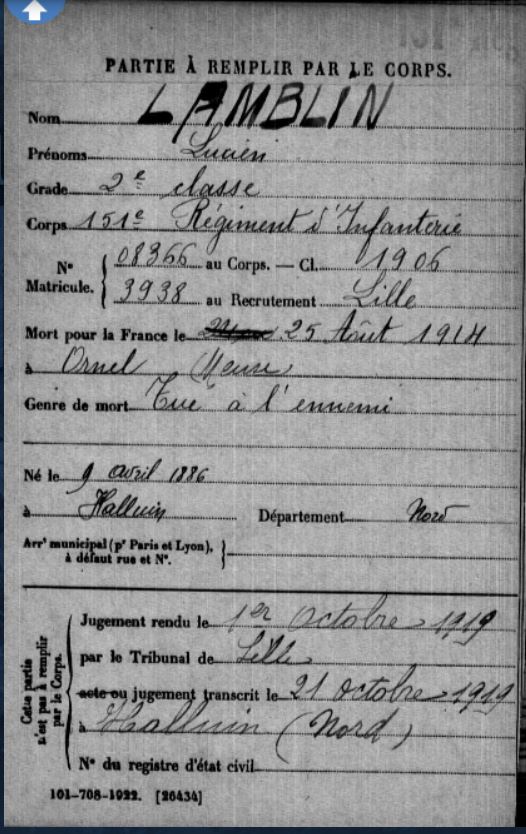 PARTIE À REMPLIR PAR LE CORPS.
Nom LAMBLIN
Prénoms Lucien
Grade 2e classe
Corps 151e Régiment d'Infanterie
N° Matricule. { 08366 au Corps. — Cl. 1906
3938 au Recrutement Lille
Mort pour la France le 25 Août 1914
à Ornel (Meuse)
Genre de mort Tué à l'ennemi
Né le 9 avril 1886
à Halluin Département Nord
Arrt municipal (pr Paris et Lyon), à défaut rue et N°. }
Cette partie n'est pas à remplir par le Corps.
Jugement rendu le 1er Octobre 1919
par le Tribunal de Lille
acte ou jugement transcrit le 21 octobre 1919
à Halluin (Nord)
N° du registre d'état civil
101-708-1922. [26434]